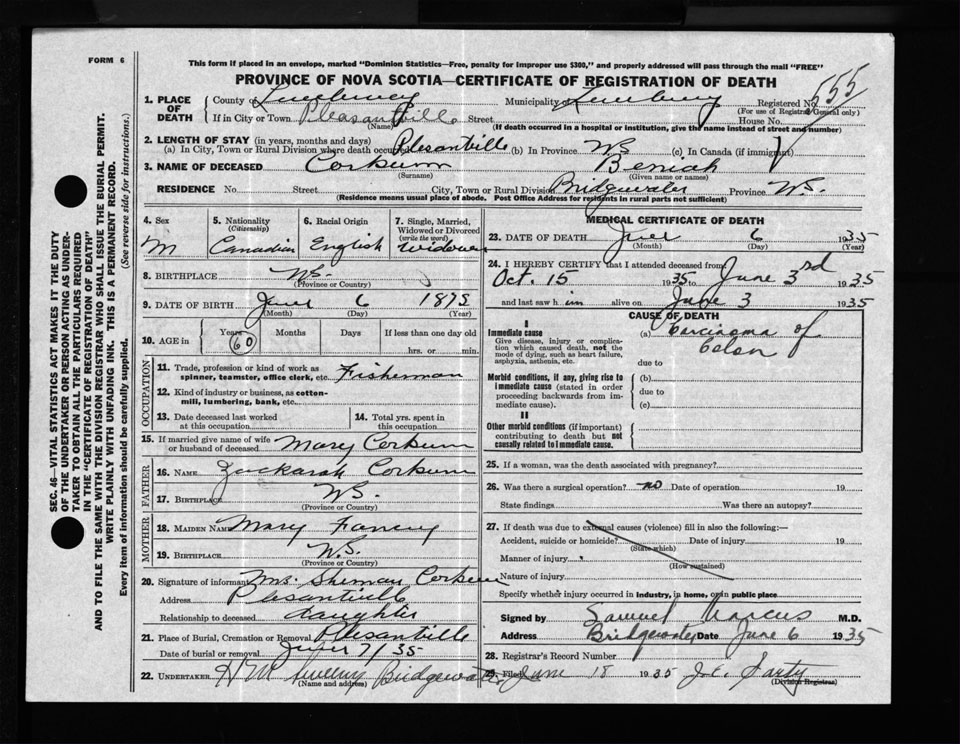 FORM 6
This form if placed in an envelope, marked "Dominion Statistics—Free, penalty for improper use $300," and properly addressed will pass through the mail "FREE"
PROVINCE OF NOVA SCOTIA—CERTIFICATE OF REGISTRATION OF DEATH
555
1. PLACE OF DEATH County of Municipality Lunenburg Registered No.
(For use of Registrar General only)
If in City or Town Pleasantville Street House No.
(Name) (If death occurred in a hospital or institution, give the name instead of street and number)
2. LENGTH OF STAY (in years, months and days)
(a) In City, Town or Rural Division where death occurred Plesantville (b) In Province NS (c) In Canada (if immigrant)
3. NAME OF DECEASED Corkum Beniah
(Surname) (Given name or names)
RESIDENCE No. Street City, Town or Rural Division Bridgewater Province N.S.
(Residence means usual place of abode. Post Office Address for residents in rural parts not sufficient)
4. Sex M
5. Nationality (Citizenship) Canadian
6. Racial Origin English
7. Single, Married, Widowed or Divorced (write the word) Widower
8. BIRTHPLACE N.S.
(Province or Country)
9. DATE OF BIRTH June 6
(Month) (Day) (Year)
10. AGE in Years Months Days If less than one day old
60 hrs. or min.
OCCUPATION
11. Trade, profession or kind of work as spinner, teamster, office clerk, etc. Fisherman
12. Kind of industry or business, as cotton-mill, lumbering, bank, etc.
13. Date deceased last worked at this occupation
14. Total yrs. spent in this occupation
15. If married give name of wife or husband of deceased Mary Corkum
FATHER
16. NAME Zackarah Corkum
17. BIRTHPLACE N.S.
(Province or Country)
MOTHER
18. MAIDEN NAME Mary
19. BIRTHPLACE N.S.
(Province or Country)
20. Signature of informant Mrs. Sherman Corkum
Address Plesantville
Relationship to deceased daughter
21. Place of Burial, Cremation or Removal Plesantville
Date of burial or removal June 7/35
22. UNDERTAKER Bridgewater
(Name and address)
MEDICAL CERTIFICATE OF DEATH
23. DATE OF DEATH June 6 1935
(Month) (Day) (Year)
24. I HEREBY CERTIFY that I attended deceased from
Oct. 15 1935 to June 3rd 1935
and last saw him alive on June 3 1935
CAUSE OF DEATH
I
Immediate cause
Give disease, injury or complication which caused death, not the mode of dying, such as heart failure, asphyxia, asthenia, etc.
(a) Carcinoma of Colon
due to
Morbid conditions, if any, giving rise to immediate cause (stated in order proceeding backwards from immediate cause).
(b)
due to
(c)
II
Other morbid conditions (if important) contributing to death but not causally related to immediate cause.
25. If a woman, was the death associated with pregnancy?
26. Was there a surgical operation? no Date of operation 19
State findings Was there an autopsy?
27. If death was due to external causes (violence) fill in also the following:—
Accident, suicide or homicide? Date of injury 19
(State which)
Manner of injury
(How sustained)
Nature of injury
Specify whether injury occurred in industry, in home, or in public place
Signed by Samuel Marcus M.D.
Address Bridgewater Date June 6 1935
28. Registrar's Record Number
29. Filed June 18 1935 J.E. Sarty
(Division Registrar)
SEC. 46—VITAL STATISTICS ACT MAKES IT THE DUTY
OF THE UNDERTAKER OR PERSON ACTING AS UNDER-
TAKER TO OBTAIN ALL THE PARTICULARS REQUIRED
IN THE "CERTIFICATE OF REGISTRATION OF DEATH"
AND TO FILE THE SAME WITH THE DIVISION REGISTRAR WHO SHALL ISSUE THE BURIAL PERMIT.
WRITE PLAINLY WITH UNFADING INK. THIS IS A PERMANENT RECORD.
Every item of information should be carefully supplied. (See reverse side for instructions.)